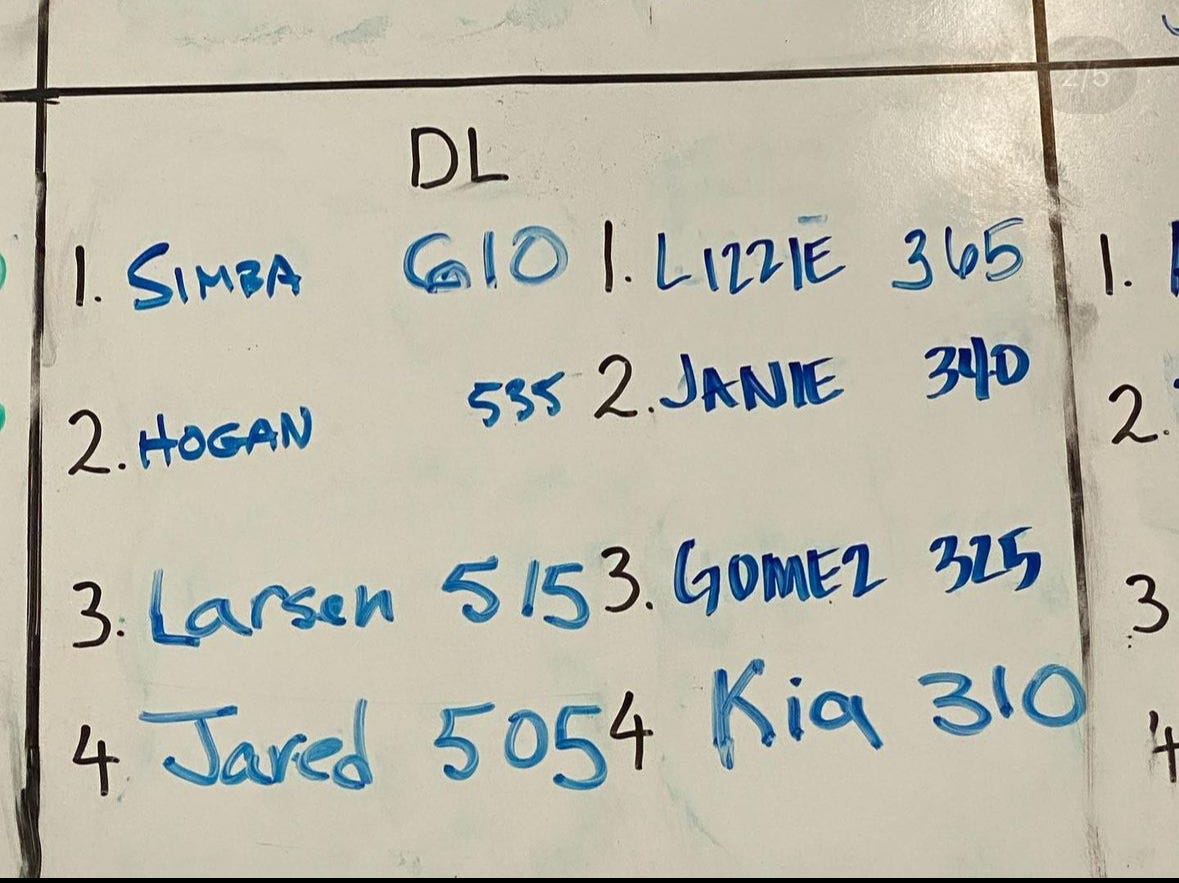 2/5
DL
1. SIMBA 610 1. LIZZIE 365 1.
2. HOGAN 535 2. JANIE 340 2.
3. Larsen 515 3. GOMEZ 325 3
4 Jared 505 4 Kia 310 4